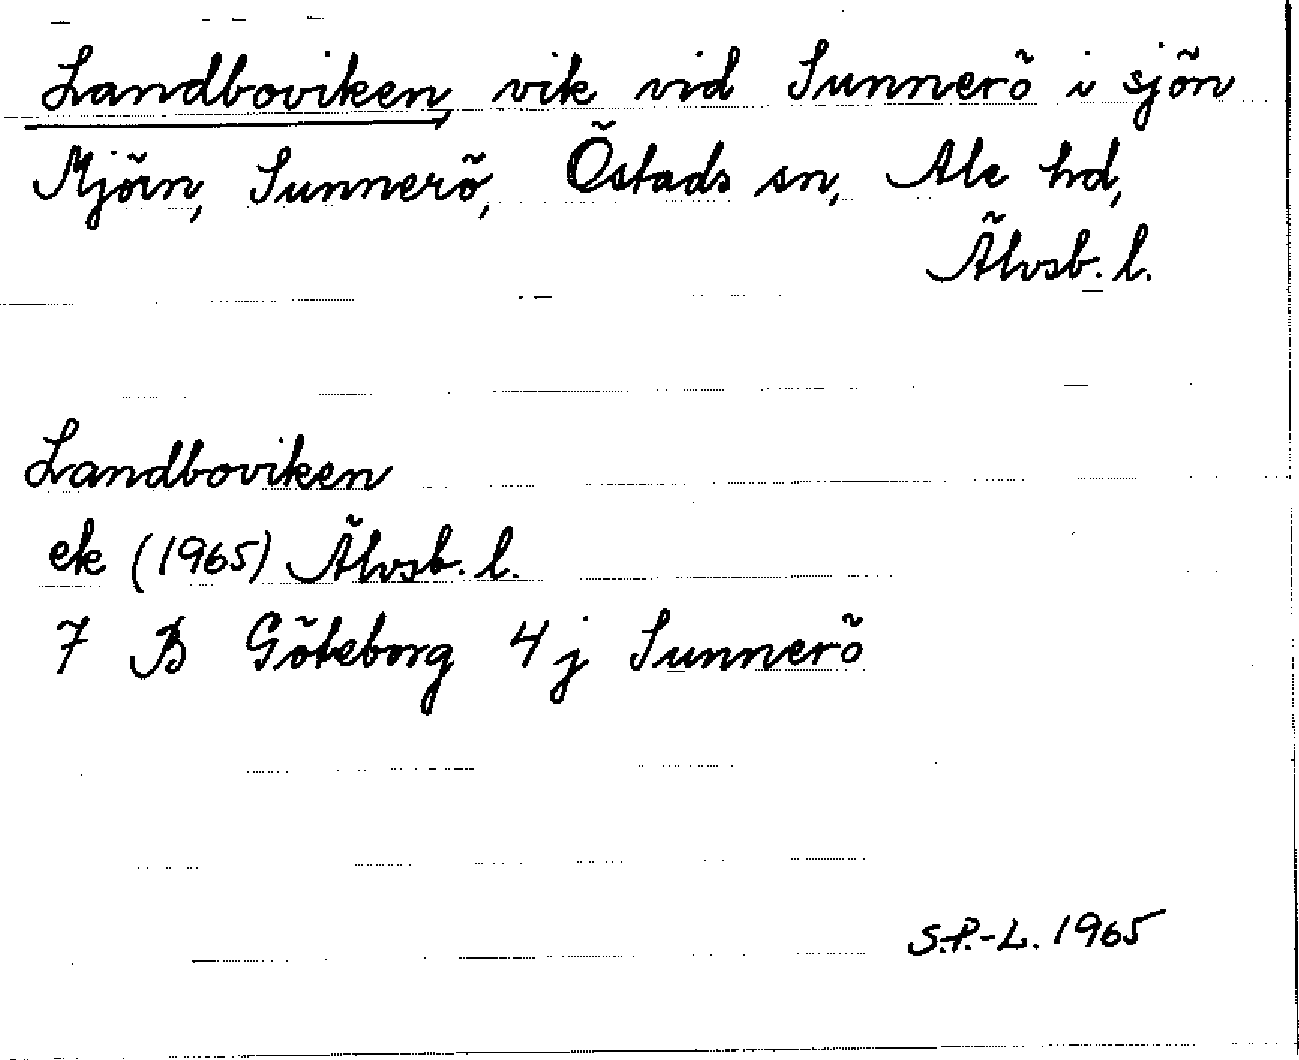 Landboviken, vik vid Sunnerö i sjön
Mjörn, Sunnerö, Östads sn, Ale hd,
Älvsb. l.
Landboviken
ek (1965) Älvsb. l.
7 B Göteborg 4 j Sunnerö
S.P.-L. 1965